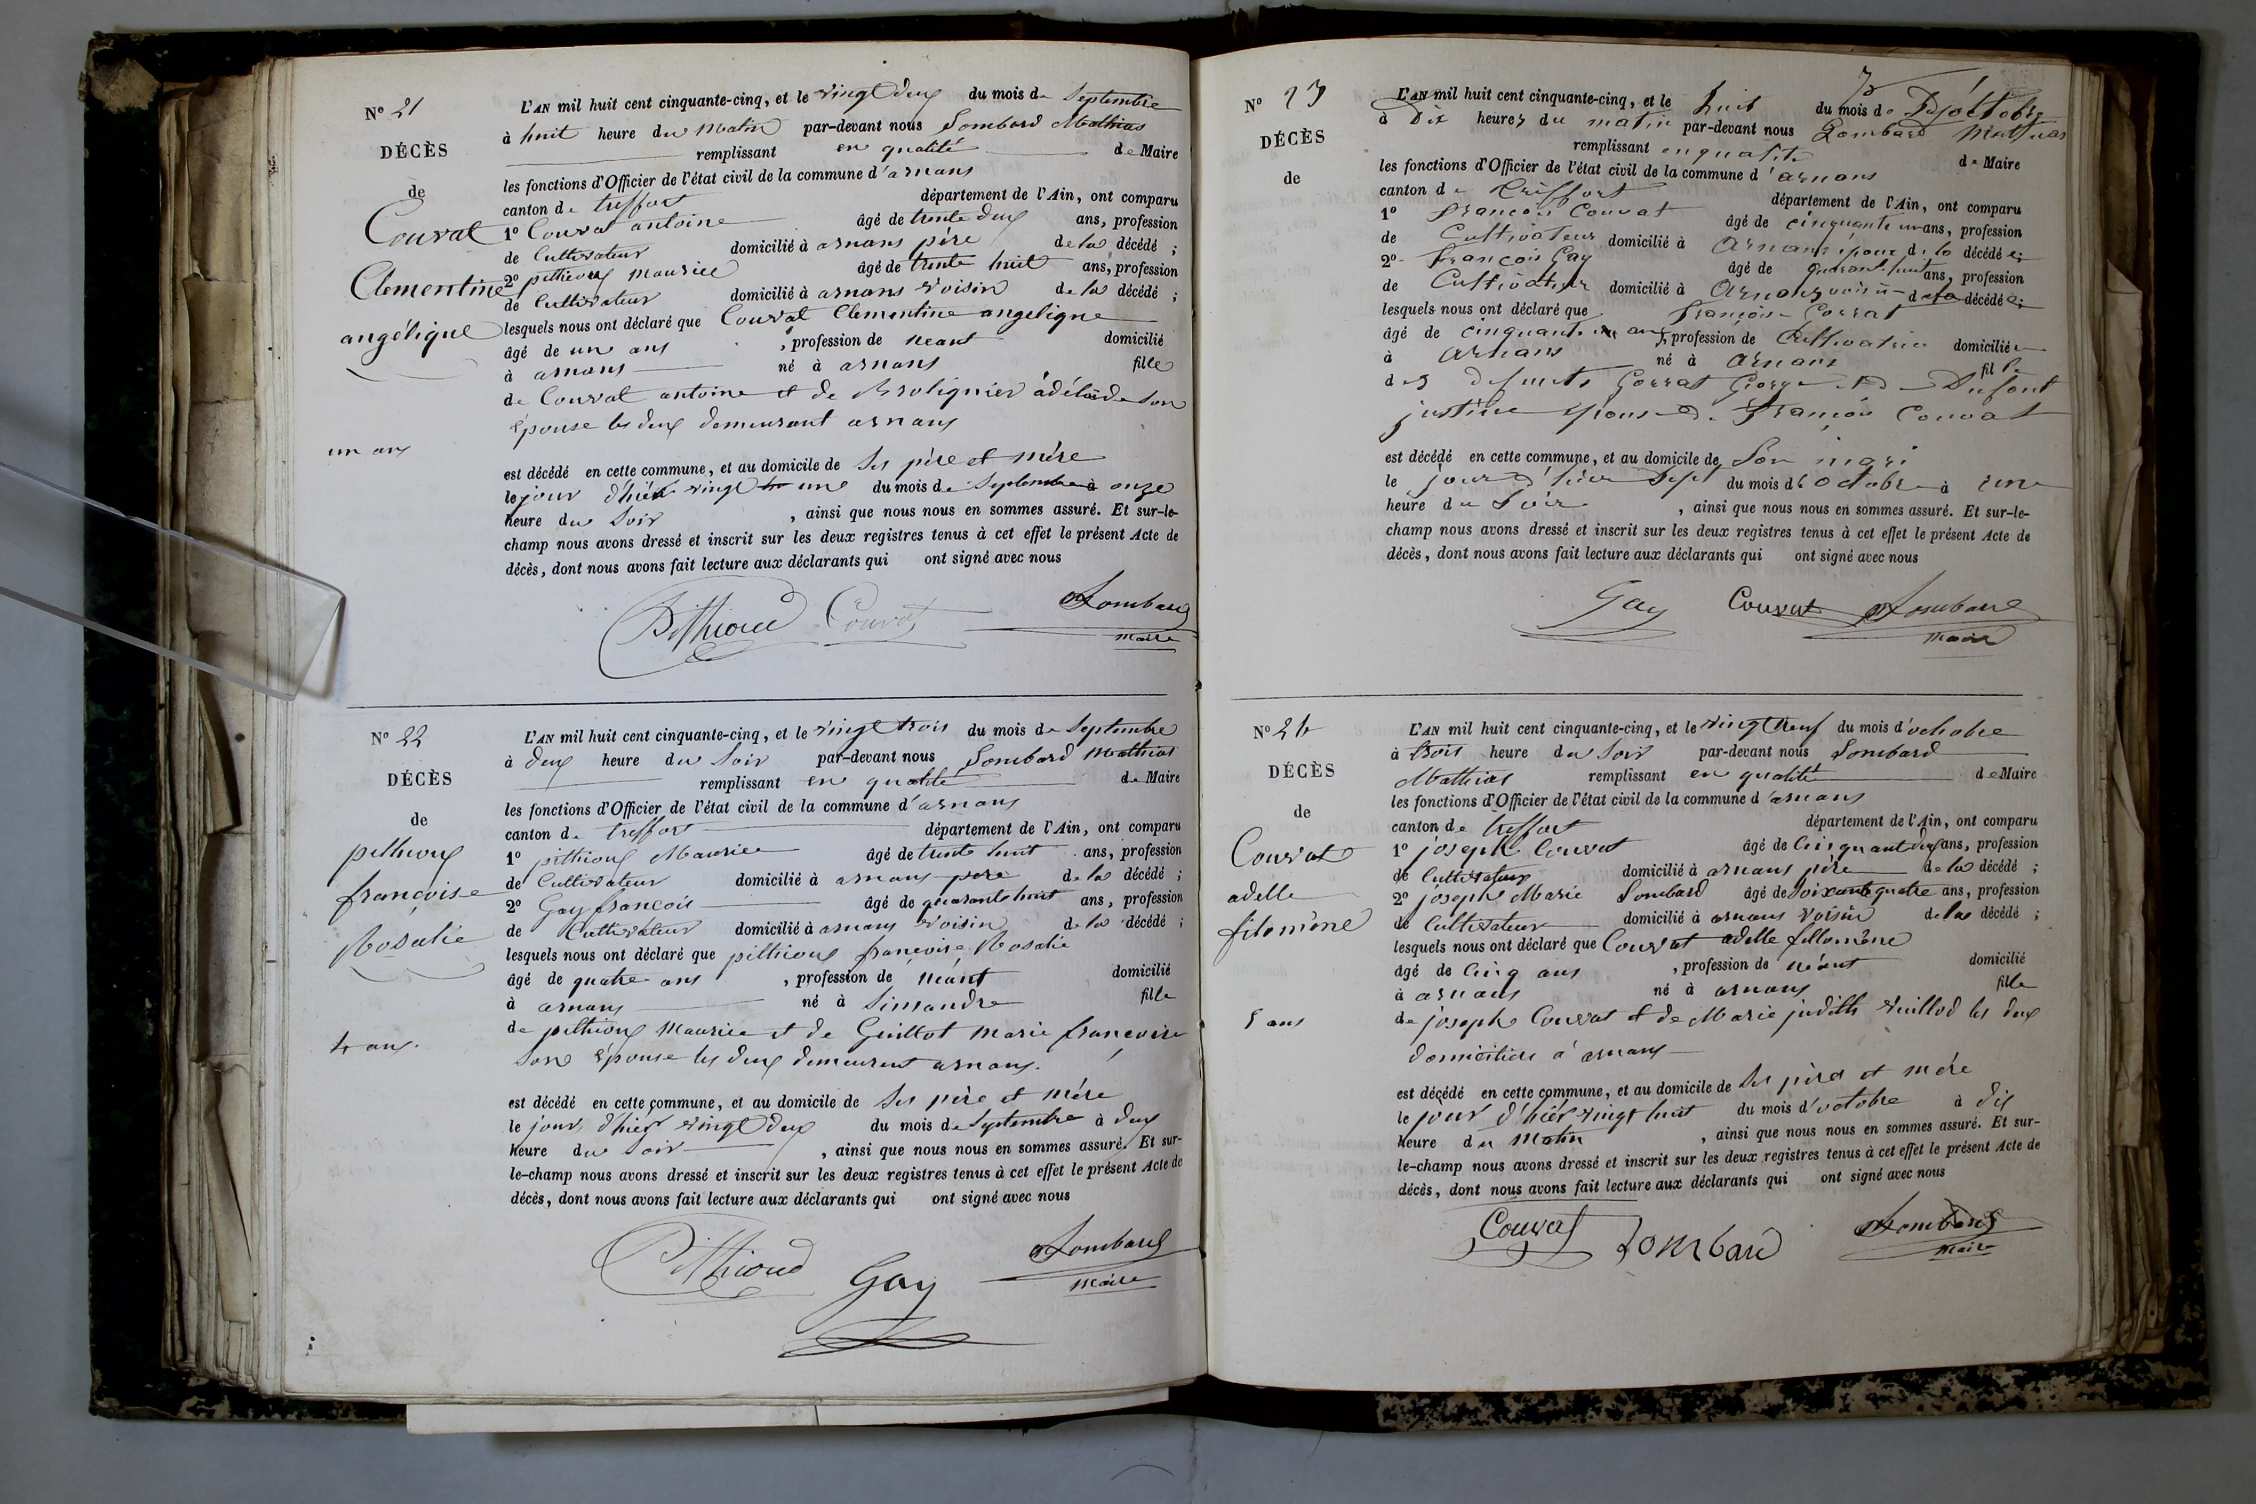 Nº 21
DÉCÈS
de
Couvat
Clementine
angélique
un ans
L'AN mil huit cent cinquante-cinq, et le vingt deux du mois de Septembre
à huit heure du Matin par-devant nous Lombard Mathias
remplissant en qualité de Maire
les fonctions d'Officier de l'état civil de la commune d'arnans
canton de treffort département de l'Ain, ont comparu
1º Couvat antoine âgé de trente deux ans, profession
de Cultivateur domicilié à arnans père de la décédé ;
2º pithioux Maurice âgé de trente huit ans, profession
de Cultivateur domicilié à arnans voisin de la décédé ;
lesquels nous ont déclaré que Couvat Clementine angeligne
âgé de un ans , profession de neant domicilié
à arnans né à arnans fille
de Couvat antoine et de Broliquier adélaïde son
épouse les deux demeurant arnans
est décédé en cette commune, et au domicile de ses père et mère
le jour d'hiér vingt une du mois de Septembre à onze
heure du Soir , ainsi que nous nous en sommes assuré. Et sur-le-
champ nous avons dressé et inscrit sur les deux registres tenus à cet effet le présent Acte de
décès, dont nous avons fait lecture aux déclarants qui ont signé avec nous
Pithioud Couvat Lombard
maire
Nº 22
DÉCÈS
de
pithioux
françoise
Rosalie
4 ans.
L'AN mil huit cent cinquante-cinq, et le vingt trois du mois de Septembre
à deux heure du Soir par-devant nous Lombard Mathias
remplissant en qualité de Maire
les fonctions d'Officier de l'état civil de la commune d'arnans
canton de treffort département de l'Ain, ont comparu
1º pithioux Maurice âgé de trente huit ans, profession
de Cultivateur domicilié à arnans pere de la décédé ;
2º Gay françois âgé de quarante huit ans, profession
de Cultivateur domicilié à arnans voisin de la décédé ;
lesquels nous ont déclaré que pithioux françoise Rosalie
âgé de quatre ans , profession de néant domicilié
à arnans né à Simandre fille
de pithioux Maurice et de Guillot Marie françoise
son épouse les deux demeurent arnans.
est décédé en cette commune, et au domicile de ses père et mére
le jour d'hiér vingt deux du mois de Septembre à deux
heure du Soir , ainsi que nous nous en sommes assuré. Et sur-
le-champ nous avons dressé et inscrit sur les deux registres tenus à cet effet le présent Acte de
décès, dont nous avons fait lecture aux déclarants qui ont signé avec nous
Pithioud Gay Lombard
maire
Nº 23
DÉCÈS
de
L'AN mil huit cent cinquante-cinq, et le huit du mois d'octobre
à Dix heures du matin par-devant nous Lombard Mathias
remplissant en qualité de Maire
les fonctions d'Officier de l'état civil de la commune d'arnans
canton de treffort département de l'Ain, ont comparu
1º françois Couvat âgé de cinquante un ans, profession
de Cultivateur domicilié à Arnans époux de la décédée;
2º françois Gay âgé de quarant huit ans, profession
de Cultivateur domicilié à Arnans voisin de la décédée;
lesquels nous ont déclaré que françoise Corrat
âgé de cinquante un ans, profession de Cultivatrice domiciliée
à Arnans né à Arnans fille
des defunts Gorrat George et de Dufont
justine épouse de françois Couvat
est décédé en cette commune, et au domicile de son mari
le jour d'hier sept du mois d'octobre à une
heure du Soir , ainsi que nous nous en sommes assuré. Et sur-le-
champ nous avons dressé et inscrit sur les deux registres tenus à cet effet le présent Acte de
décès, dont nous avons fait lecture aux déclarants qui ont signé avec nous
Gay Couvat Lombard
maire
Nº 24
DÉCÈS
de
Couvat
adelle
filomène
5 ans
L'AN mil huit cent cinquante-cinq, et le vingt neuf du mois d'octobre
à trois heure du Soir par-devant nous Lombard
Mathias remplissant en qualité de Maire
les fonctions d'Officier de l'état civil de la commune d'arnans
canton de treffort département de l'Ain, ont comparu
1º joseph Couvat âgé de Cinquant deux ans, profession
de Cultivateur domicilié à arnans père de la décédé ;
2º joseph Marie Lombard âgé de soixante quatre ans, profession
de Cultivateur domicilié à arnans voisin de la décédé ;
lesquels nous ont déclaré que Couvat adelle fillomène
âgé de Cinq ans , profession de néant domicilié
à arnans né à arnans fille
de joseph Couvat et de Marie judith vuillod les deux
domiciliés à arnans
est décédé en cette commune, et au domicile de ses père et mére
le jour d'hiér vingt huit du mois d'octobre à dix
heure du Matin , ainsi que nous nous en sommes assuré. Et sur-
le-champ nous avons dressé et inscrit sur les deux registres tenus à cet effet le présent Acte de
décès, dont nous avons fait lecture aux déclarants qui ont signé avec nous
Couvat Lombard Lombard
maire